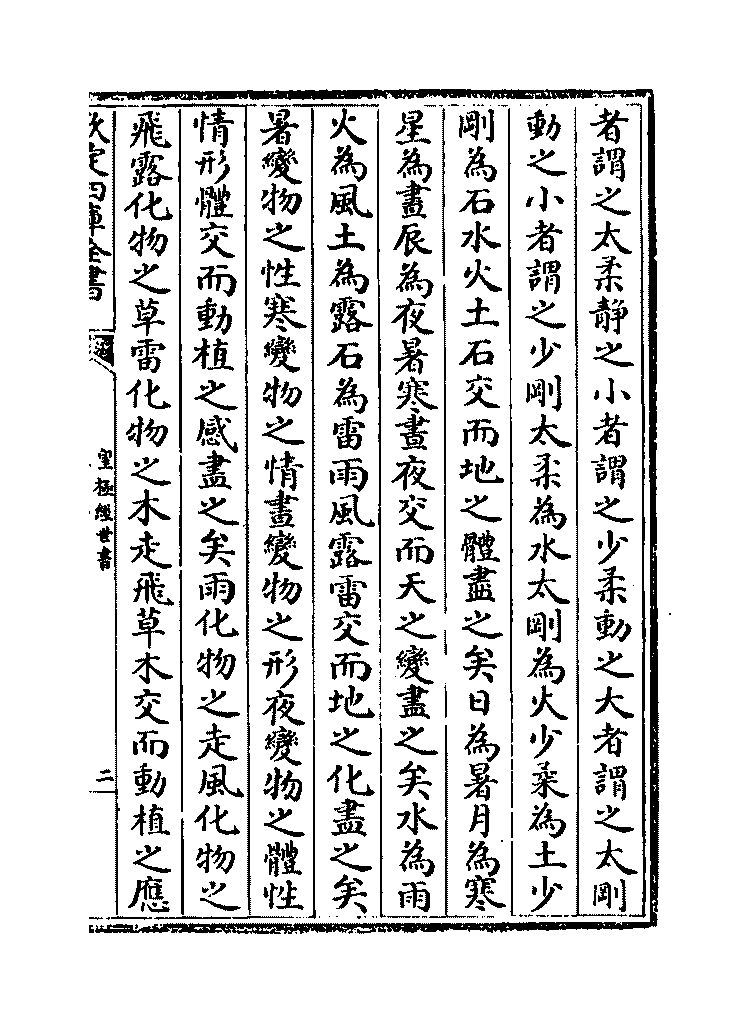 者謂之太柔靜之小者謂之少柔動之大者謂之太剛
動之小者謂之少剛太柔為水太剛為火少柔為土少
剛為石水火土石交而地之體盡之矣日為暑月為寒
星為晝辰為夜暑寒晝夜交而天之變盡之矣水為雨
火為風土為露石為雷雨風露雷交而地之化盡之矣
暑變物之性寒變物之情晝變物之形夜變物之體性
情形體交而動植之感盡之矣雨化物之走風化物之
飛露化物之草雷化物之木走飛草木交而動植之應
欽定四庫全書
皇極經世書
二